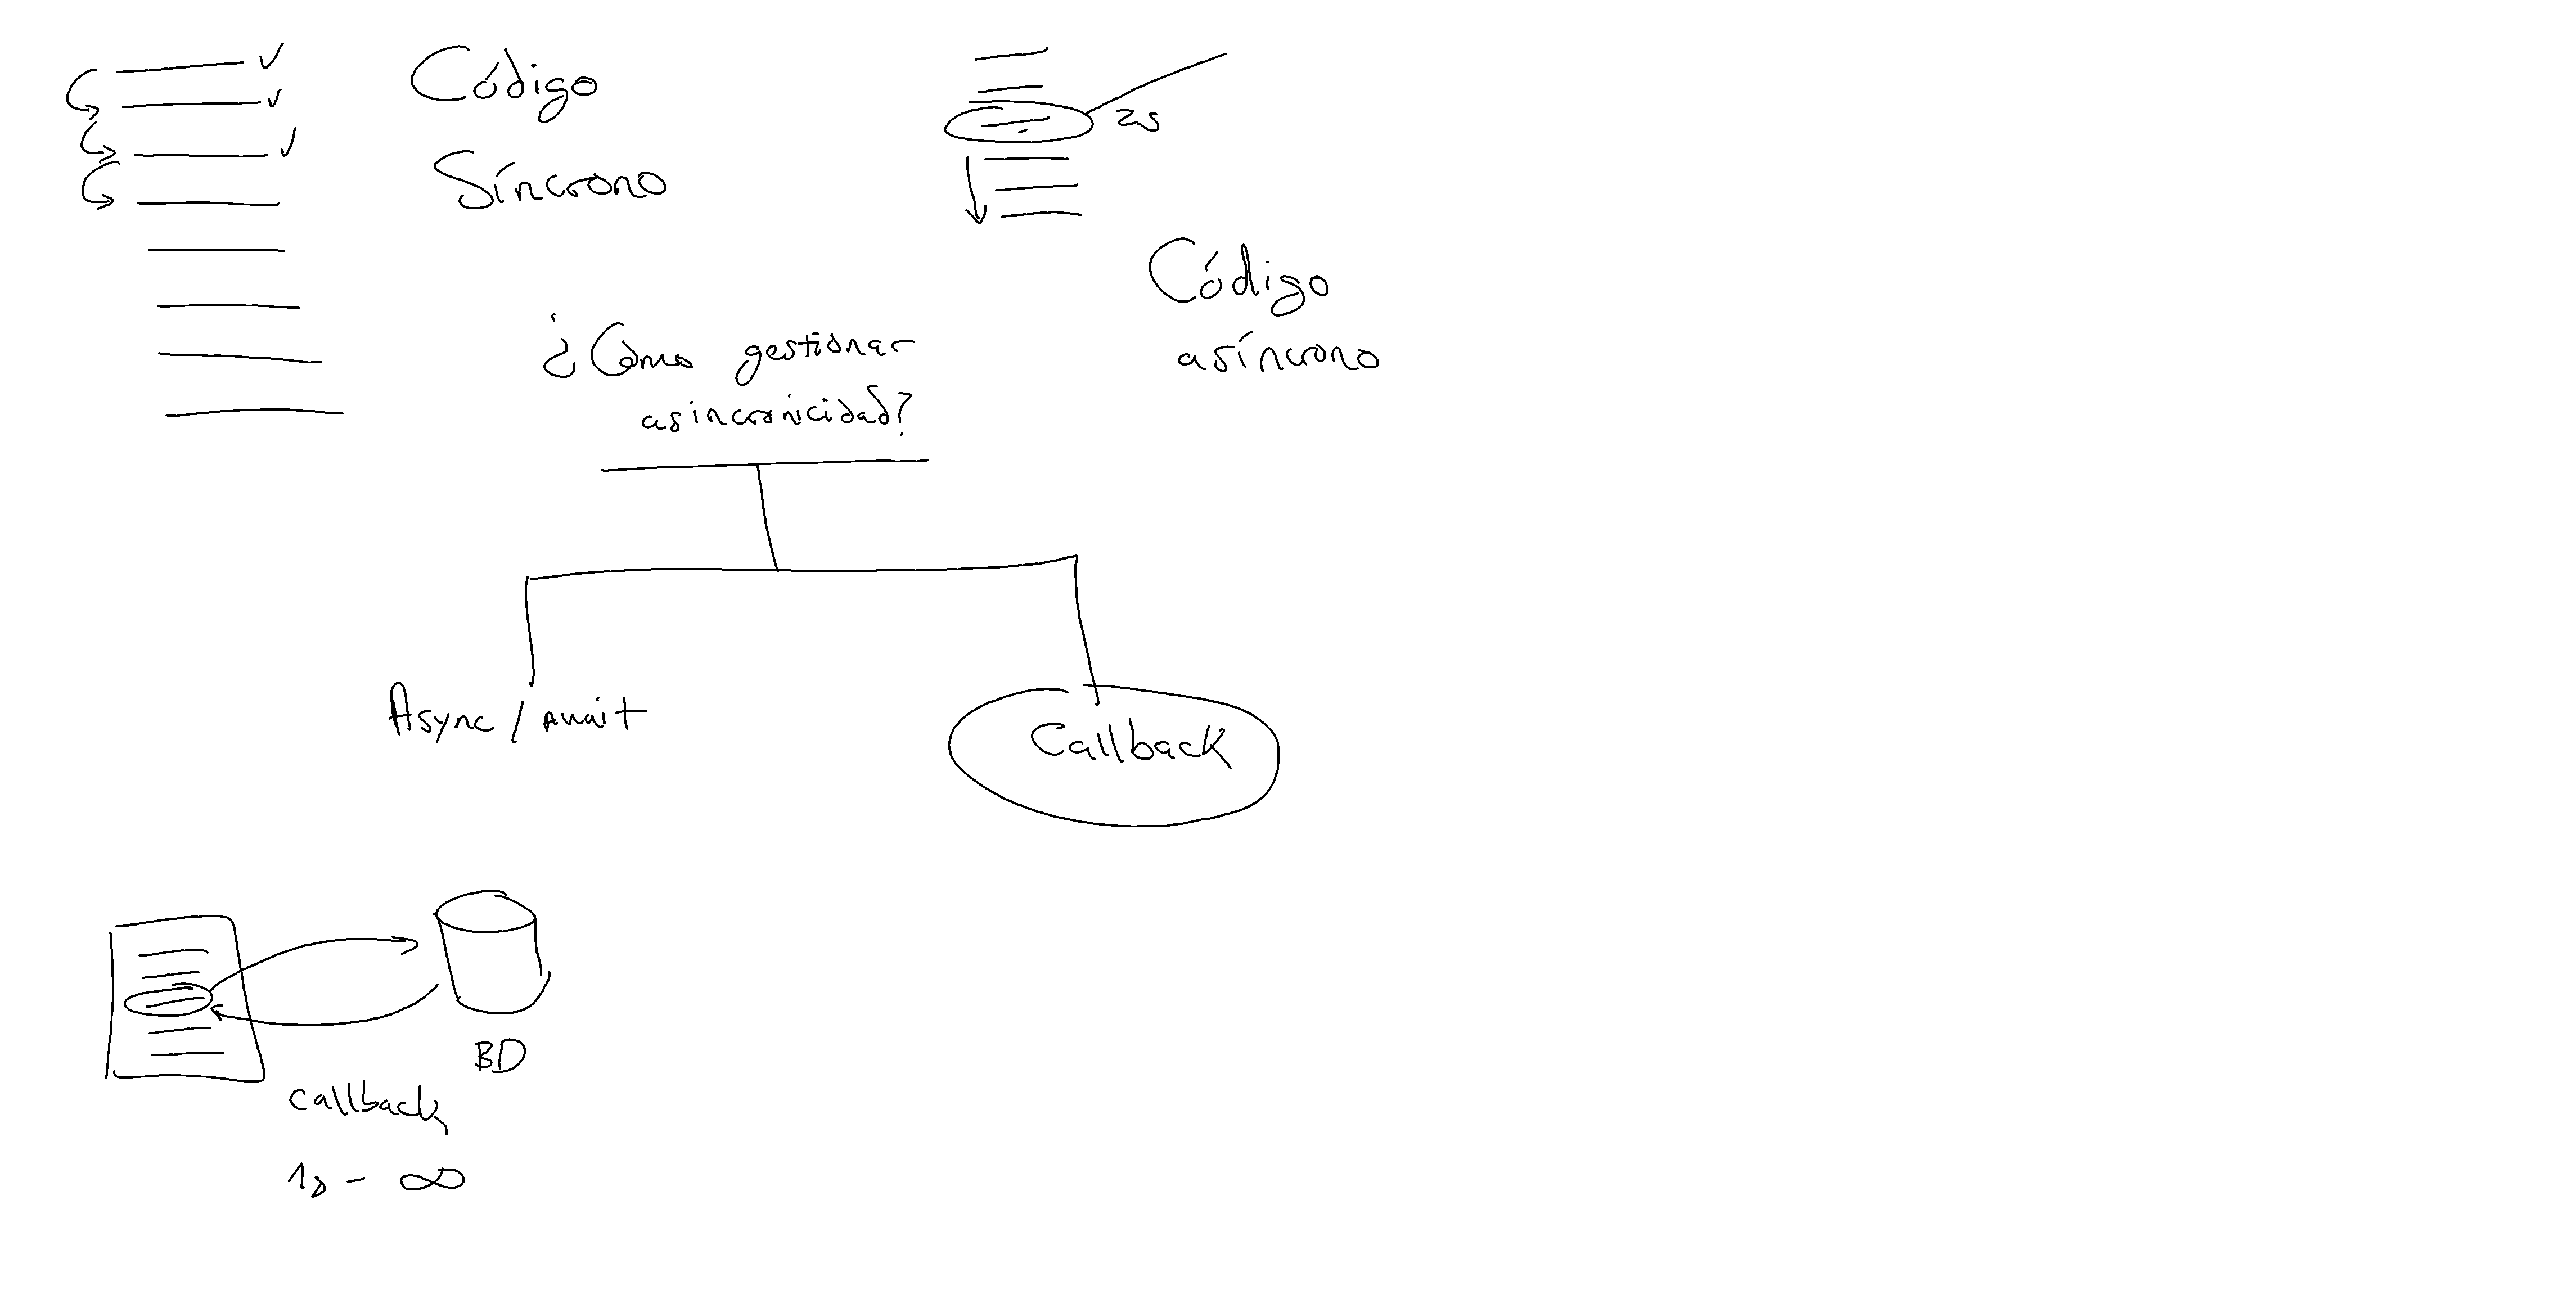 Código
Síncrono
2s
Código
asíncrono
¿Cómo gestionar
asincronicidad?
Async / await
Callback
BD
callback
1s - ∞